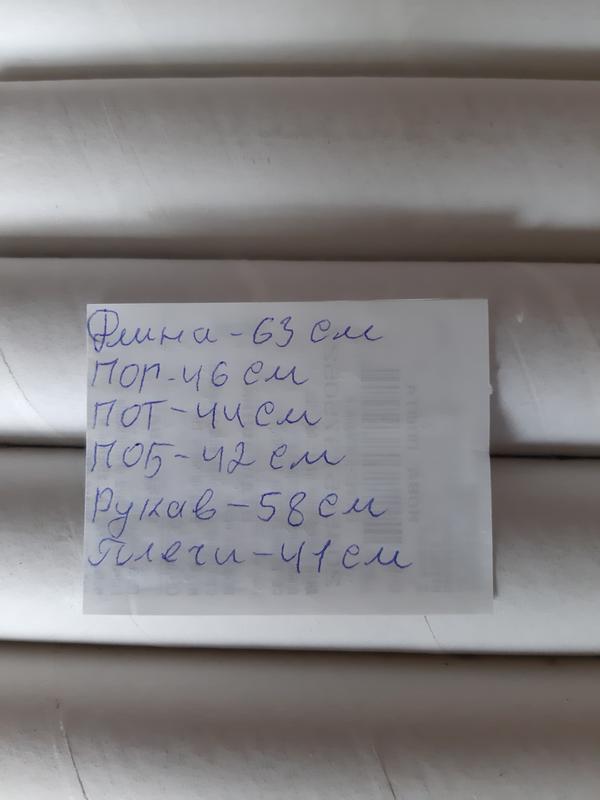 Длина - 63 см
ПОГ - 46 см
ПОТ - 44 см
ПОБ - 42 см
Рукав - 58 см
Плечи - 41 см